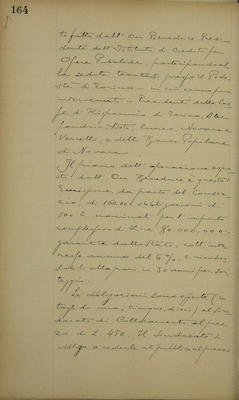 164
to fatta dall'On Beneduce, Presi-
dente dell'Istituto di Credito per
Opere Pubbliche, partecipando al
la seduta tenutasi presso il Pode
stà di Torino — in cui erano pure
intervenuti i Presidenti delle Cas
se di Risparmio di Torino, Ales
sandria, Asti, Cuneo, Novara e
Vercelli, e della Banca Popolare
di Novara.
Il piano dell'operazione espo
sto dall'On Beneduce è questo:
Emissione, da parte del Consor
zio, di 160.000 obbligazioni di
500 L. nominali per l'importo
complessivo di Lire 80.000.000=
garantite dallo Stato, coll'inte
resse annuo del 6%, e rimbor
sabili alla pari in 30 anni per sor
teggio.
Le obbligazioni sono offerte (in
tagli da una, cinque, dieci) al Sin
dacato di Collocamento al prez
zo di L. 450. Il Sindacato si
obbliga a cederle al pubblico al prezzo